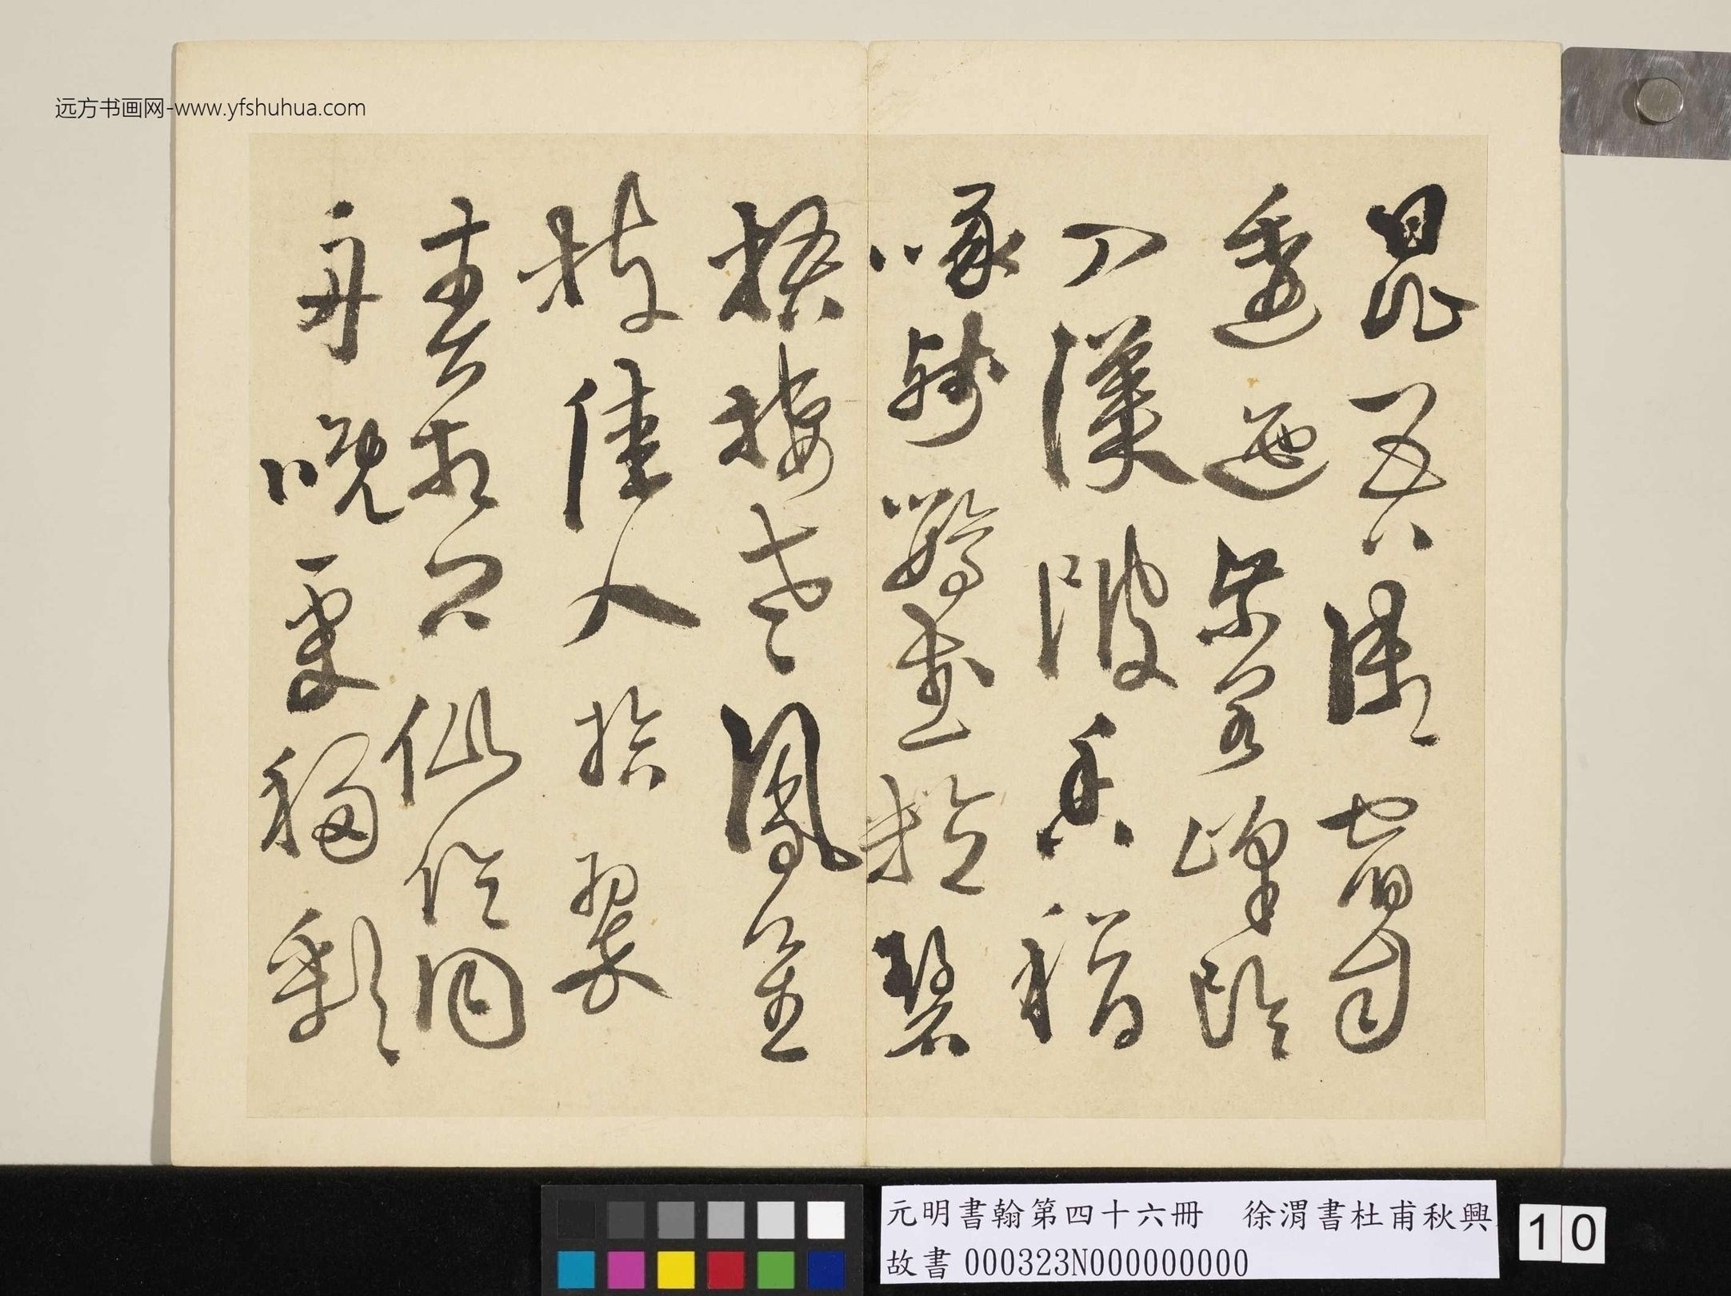 远方书画网-www.yfshuhua.com
昆吾御宿自
逶迤紫閣峰陰
入渼陂香稻
啄殘鸚鵡粒碧
梧棲老鳳皇
枝佳人拾翠
春相問仙侶同
舟晚更移彩
元明書翰第四十六冊 徐渭書杜甫秋興
故書 000323N000000000
10